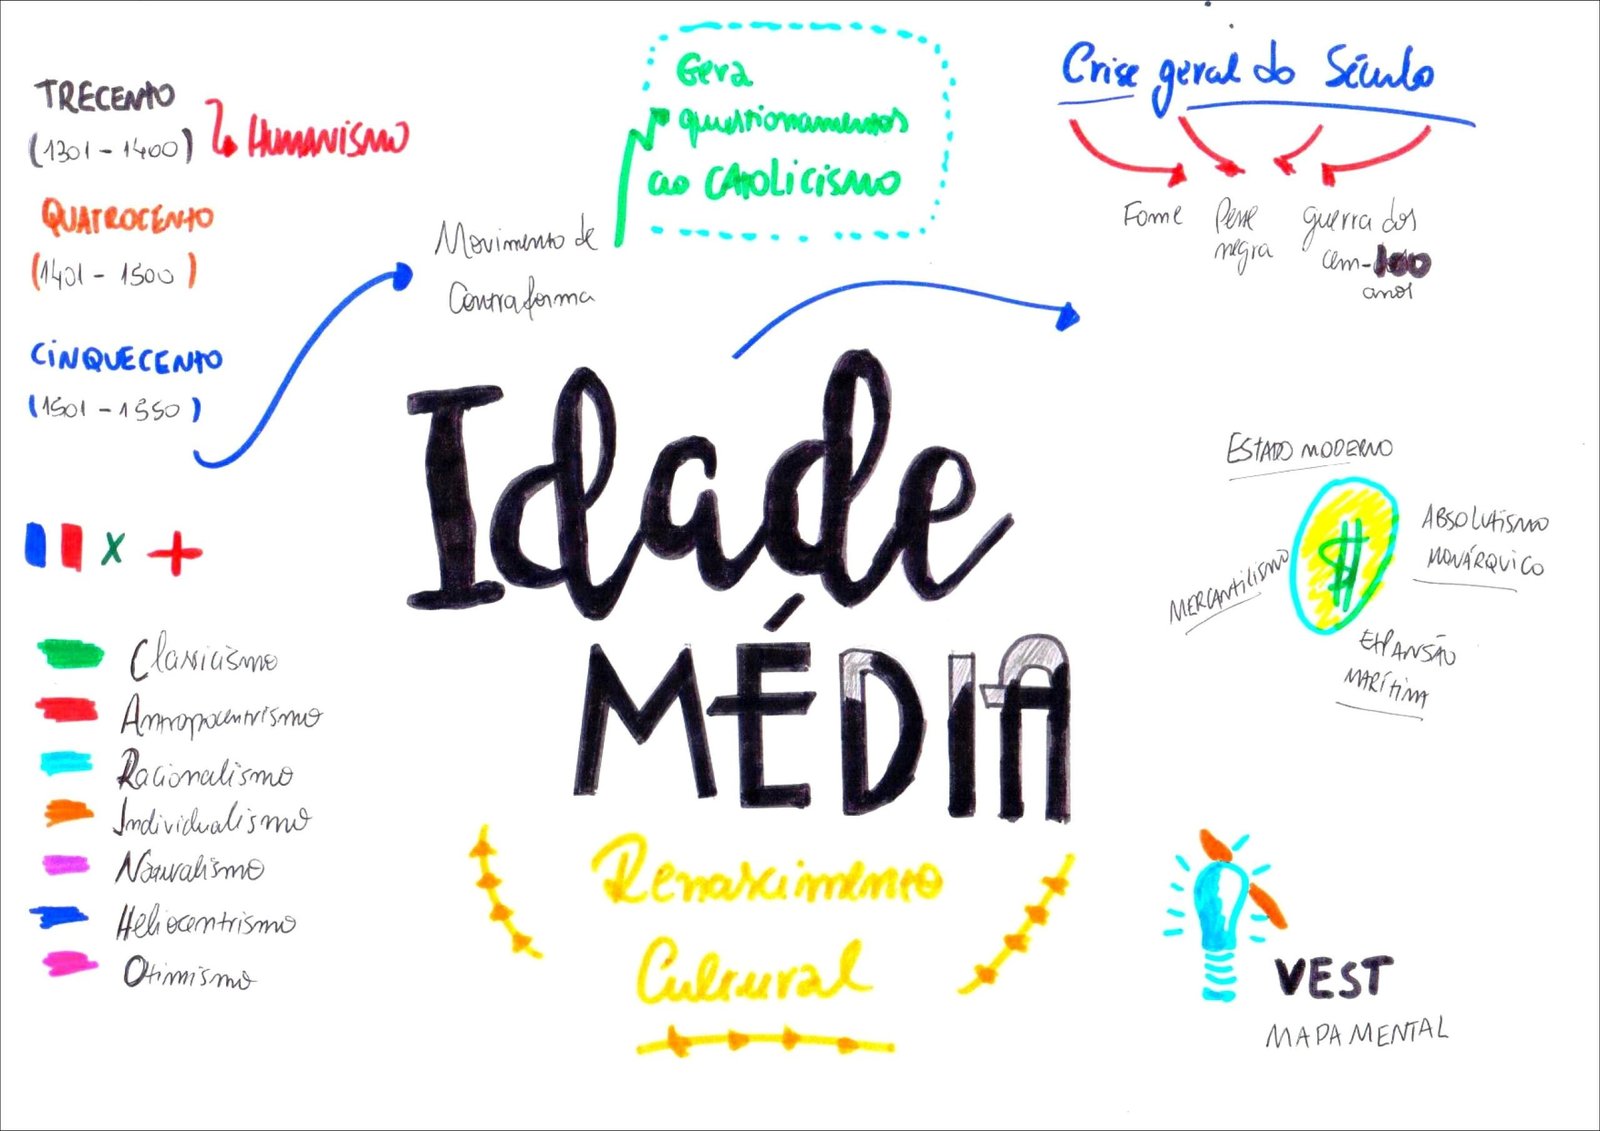 TRECENTO
(1301 - 1400)
HUMANISMO
QUATROCENTO
(1401 - 1500)
CINQUECENTO
(1501 - 1550)
Movimento de
Contraforma
Gera
questionamentos
ao CATOLICISMO
Crise geral do Século
Fome
Peste
negra
guerra dos
cem-100
anos
Idade
MÉDIA
Renascimento
Cultural
ESTADO MODERNO
$
ABSOLUTISMO
MONÁRQUICO
MERCANTILISMO
EXPANSÃO
MARÍTIMA
X
Classicismo
Antropocentrismo
Racionalismo
Individualismo
Naturalismo
Heliocentrismo
Otimismo
VEST
MAPA MENTAL